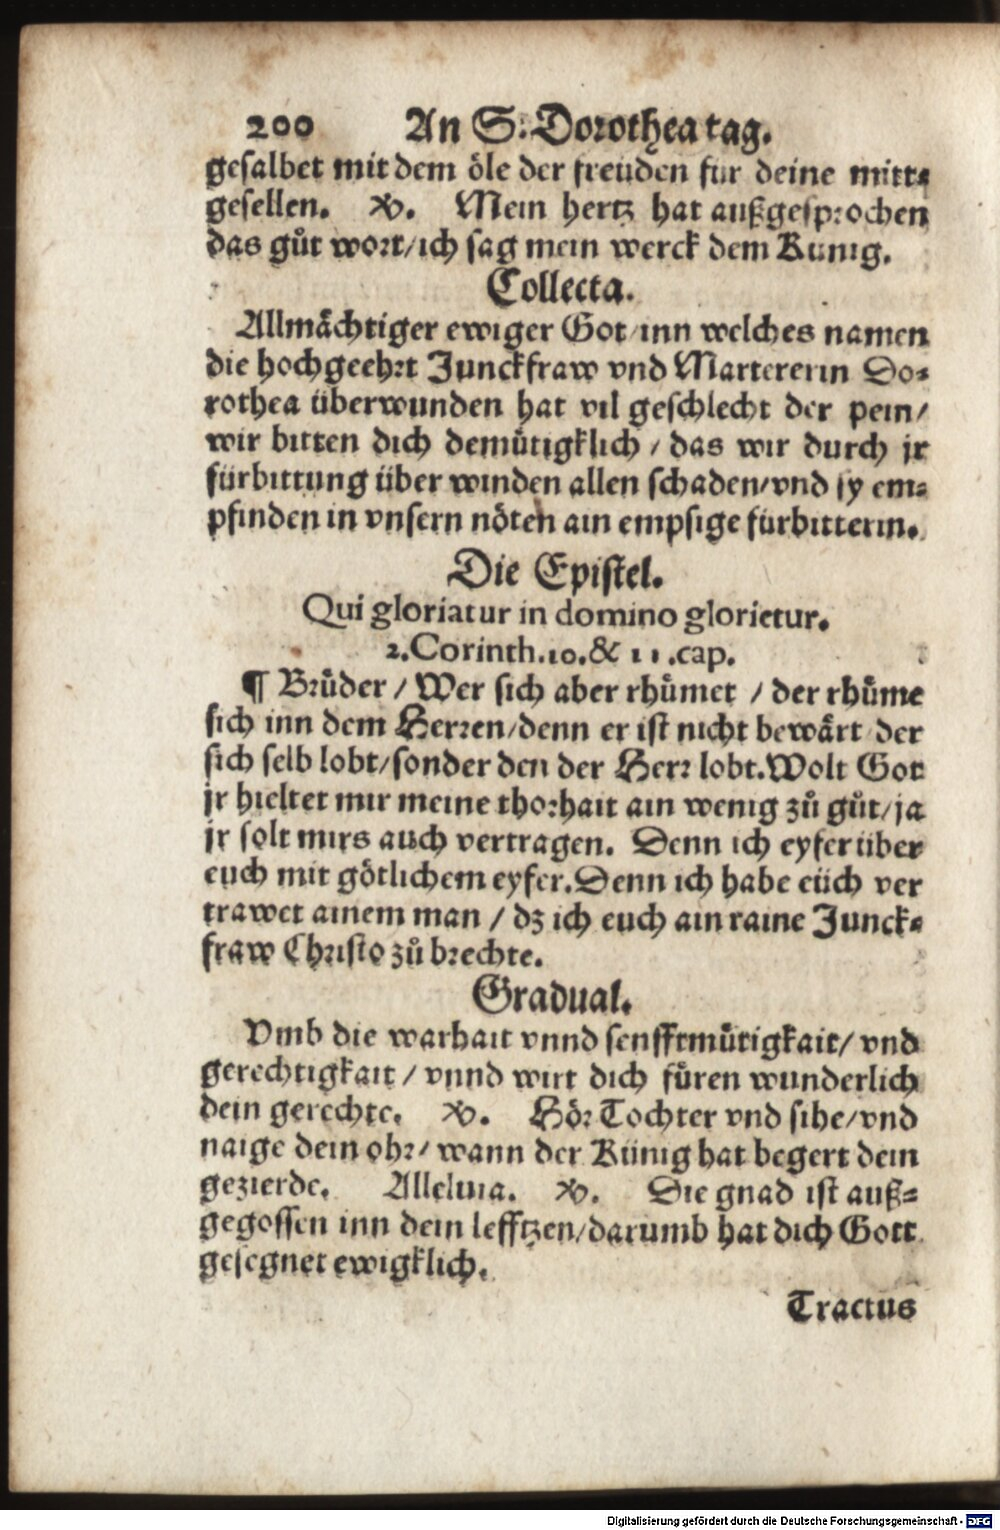 200 An S. Dorothea tag.
gesalbet mit dem öle der freuden fur deine mitt⸗
gesellen. ℣. Mein hertz hat außgesprochen
das gůt wort/ich sag mein werck dem Kunig.
Collecta.
Allmächtiger ewiger Got/inn welches namen
die hochgeehrt Junckfraw vnd Martererin Do⸗
rothea überwunden hat vil geschlecht der pein/
wir bitten dich demůtigklich / das wir durch jr
fürbittung über winden allen schaden/vnd sy em⸗
pfinden in vnsern nöten ain empsige fürbitterin.
Die Epistel.
Qui gloriatur in domino glorietur.
2.Corinth.10.& 11.cap.
¶ Brůder / Wer sich aber rhůmet / der rhůme
sich inn dem Herren/denn er ist nicht bewärt der
sich selb lobt/sonder den der Herr lobt.Wolt Got
jr hieltet mir meine thorhait ain wenig zů gůt/ja
jr solt mirs auch vertragen. Denn ich eyfer über
euch mit götlichem eyfer.Denn ich habe eüch ver
trawet ainem man / dz ich euch ain raine Junck⸗
fraw Christo zů brechte.
Gradual.
Vmb die warhait vnnd senfftmůtigkait/ vnd
gerechtigkait / vnnd wirt dich fůren wunderlich
dein gerechte. ℣. Hör Tochter vnd sihe/vnd
naige dein ohr/ wann der Künig hat begert dein
gezierde. Alleluia. ℣. Die gnad ist auß⸗
gegossen inn dein lefftzen/darumb hat dich Gott
gesegnet ewigklich.
Tractus
Digitalisierung gefördert durch die Deutsche Forschungsgemeinschaft - DFG